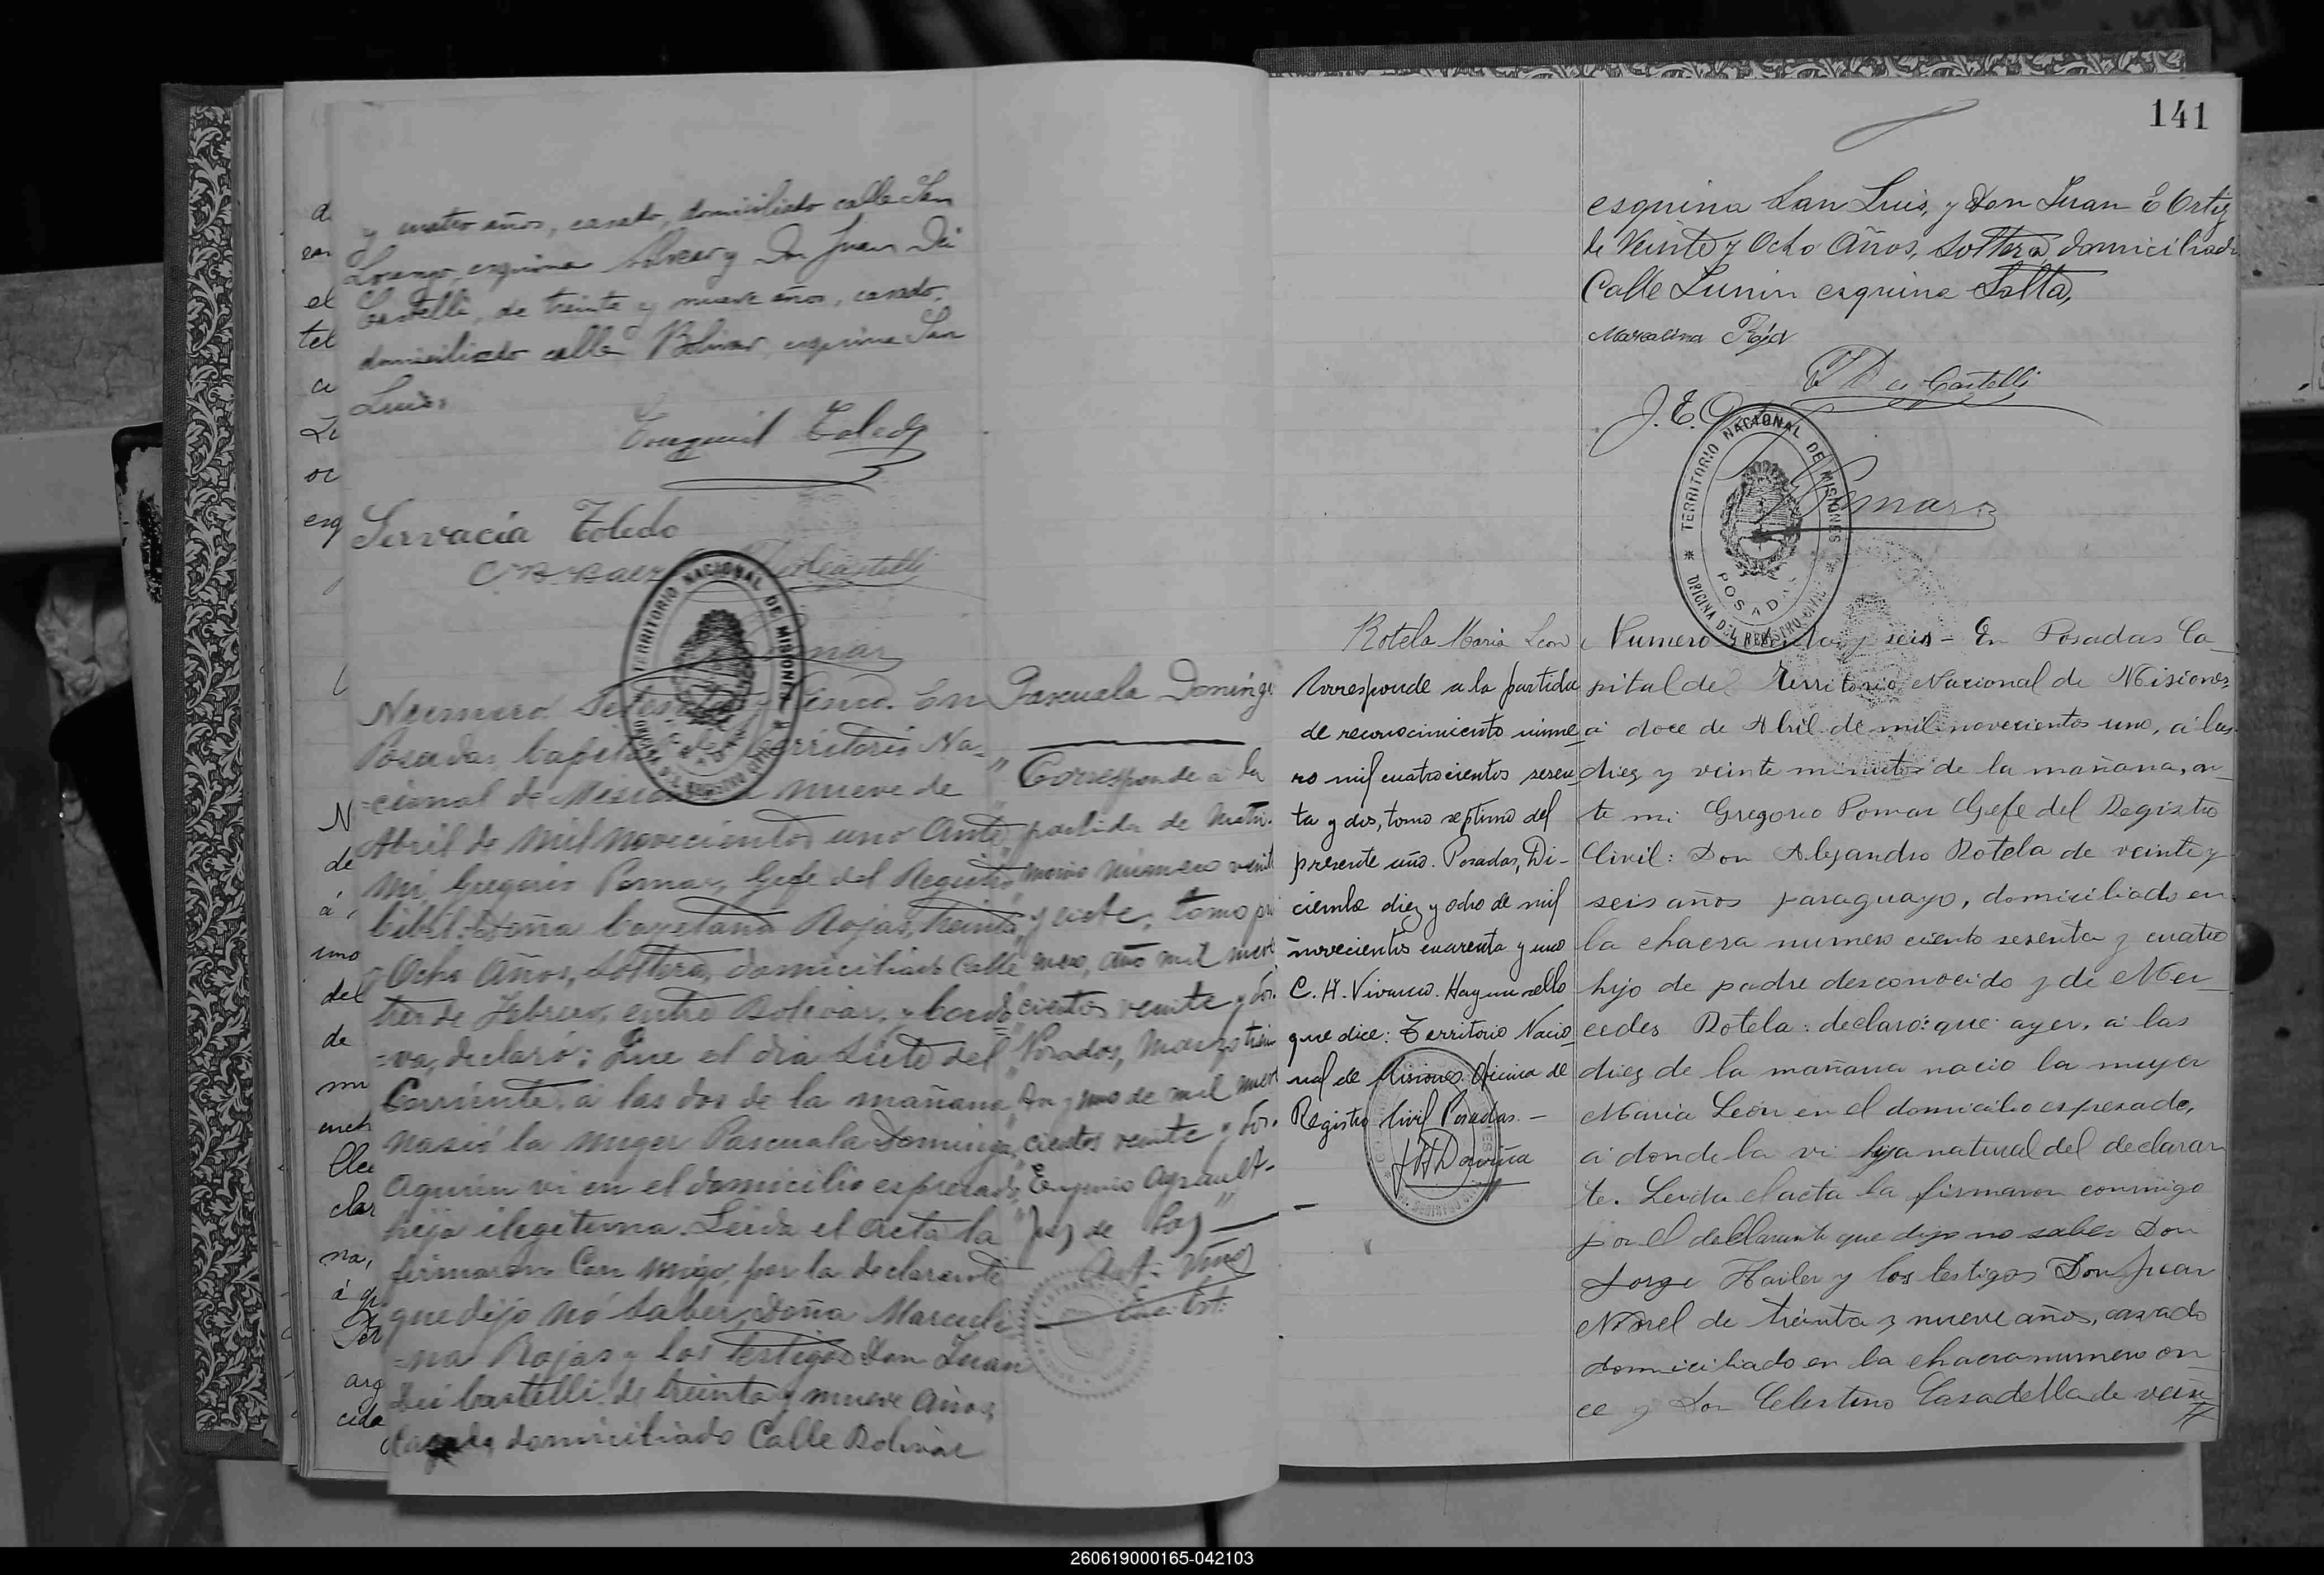 y cuatro años, casado, domiciliado calle San
Lorenzo, esquina y Don Juan Dei
Castelli, de treinta y nueve años, casado,
domiciliado calle Bolivar, esquina San
Luis.
Toledo
Servacia Toledo
C B Baez
TERRITORIO NACIONAL DE MISIONES
Numero Setenta y Cinco. En
Posadas, Capital del Territorio Na-
=cional de Misiones a nueve de
Abril de Mil novecientos uno Ante
Mi, Gregorio Pomar, Gefe del Registro
Cibil: Doña Cayetana Rojas, treinta
y Ocho Años, Soltera, domiciliada Calle
tres de Febrero, entre Bolivar, y Cordo
=va, declaró: Que el dia Siete del
Corriente, a las dos de la mañana
nasió la muger Pascuala Dominga,
aquien vi en el domicilio espresado,
hija ilegitima. Leida el Acta la
firmaron Con migo, por la declarante
que dijo nó saber, Doña Marceli
=na Rojas y los testigos Don Juan
Dei Castelli de treinta y nueve Años,
Casado, domiciliado Calle Bolivar
Pascuala Doming
"Corresponde a la
partida de matri-
monio número veinte
y siete, tomo pri
mero, año mil nove
cientos veinte y dos.
Posadas, Marzo trein
ta y uno de mil nove
cientos veinte y dos.
Eugenio Agrault-
Juez de Paz"
141
esquina San Luis, y Don Juan E Ortiz
de Veinte y Ocho Años, Soltero, domiciliado
Calle Junin esquina Salta,
Marcelina Roja
J Dei Castelli
J. E. O
Pomar
TERRITORIO NACIONAL DE MISIONES
POSADAS
OFICINA DEL REGISTRO CIVIL
Rotela Maria Leon
Corresponde a la partida
de reconocimiento núme
ro mil cuatrocientos sesen
ta y dos, tomo septimo del
presente año. Posadas, Di-
ciembre diez y ocho de mil
novecientos cuarenta y uno
C. H. Vivanco. Hay un sello
que dice: Territorio Nacio
nal de Misiones. Oficina de
Registro Civil Posadas. -
Numero setenta y seis - En Posadas Ca-
pital del Territorio Nacional de Misiones,
a doce de Abril de mil novecientos uno, a las
diez y veinte minutos de la mañana, an-
te mi Gregorio Pomar Gefe del Registro
Civil: Don Alejandro Rotela de veinte y
seis años paraguayo, domiciliado en
la chacra numero ciento sesenta y cuatro
hijo de padre desconocido y de Mer-
cedes Rotela: declaró: que ayer, a las
diez de la mañana nacio la muger
Maria León en el domicilio espresado,
a donde la vi hija natural del declaran
te. Leida el acta la firmaron conmigo
por el declarante que dijo no saber Don
Jorge y los testigos Don Juan
de treinta y nueve años, casado
domiciliado en la chacra numero on-
ce y Don Celestino Casadella de vein
260619000165-042103